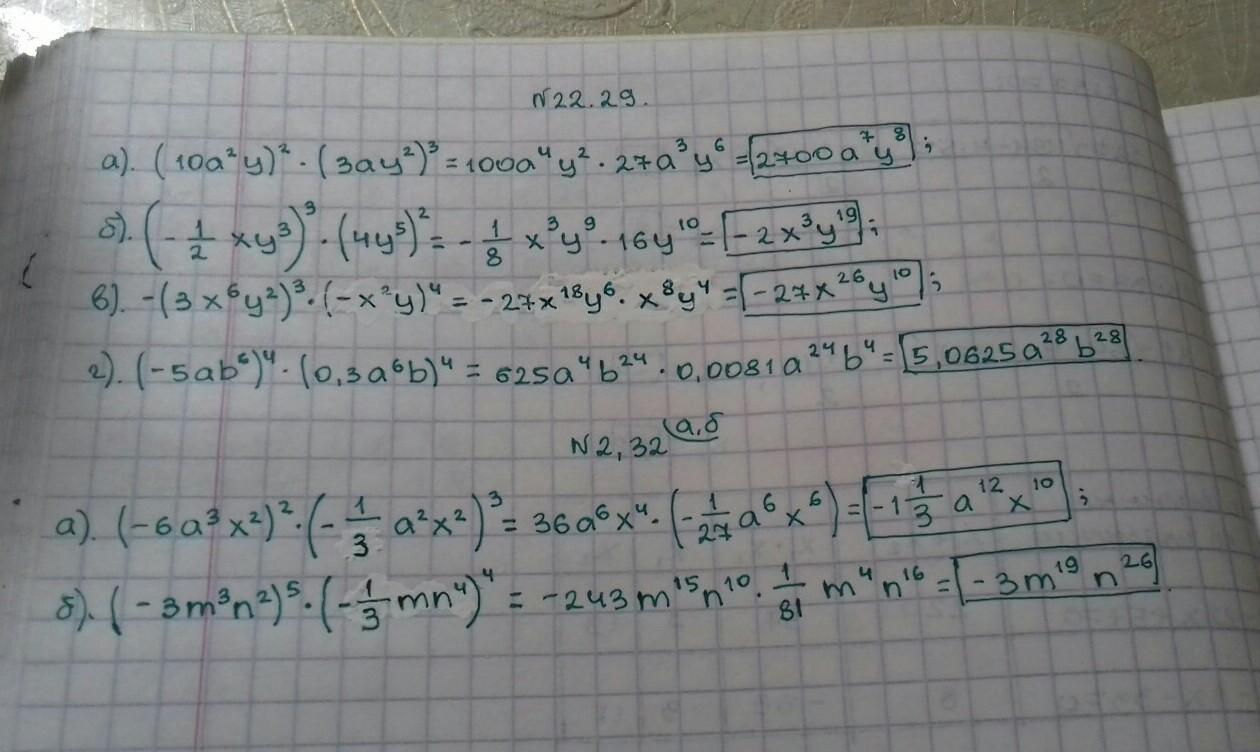 N22.29.
а). (10a²y)² · (3ay²)³ = 100a⁴y² · 27a³y⁶ = 2700a⁷y⁸;
б). (-1/2 xy³)³ · (4y⁵)² = -1/8 x³y⁹ · 16y¹⁰ = -2x³y¹⁹;
в). -(3x⁶y²)³ · (-x²y)⁴ = -27x¹⁸y⁶ · x⁸y⁴ = -27x²⁶y¹⁰;
г). (-5ab⁶)⁴ · (0,3a⁶b)⁴ = 625a⁴b²⁴ · 0,0081a²⁴b⁴ = 5,0625a²⁸b²⁸.
N2,32 (а,б
а). (-6a³x²)² · (-1/3 a²x²)³ = 36a⁶x⁴ · (-1/27 a⁶x⁶) = -1 1/3 a¹²x¹⁰;
б). (-3m³n²)⁵ · (-1/3 mn⁴)⁴ = -243m¹⁵n¹⁰ · 1/81 m⁴n¹⁶ = -3m¹⁹n²⁶.